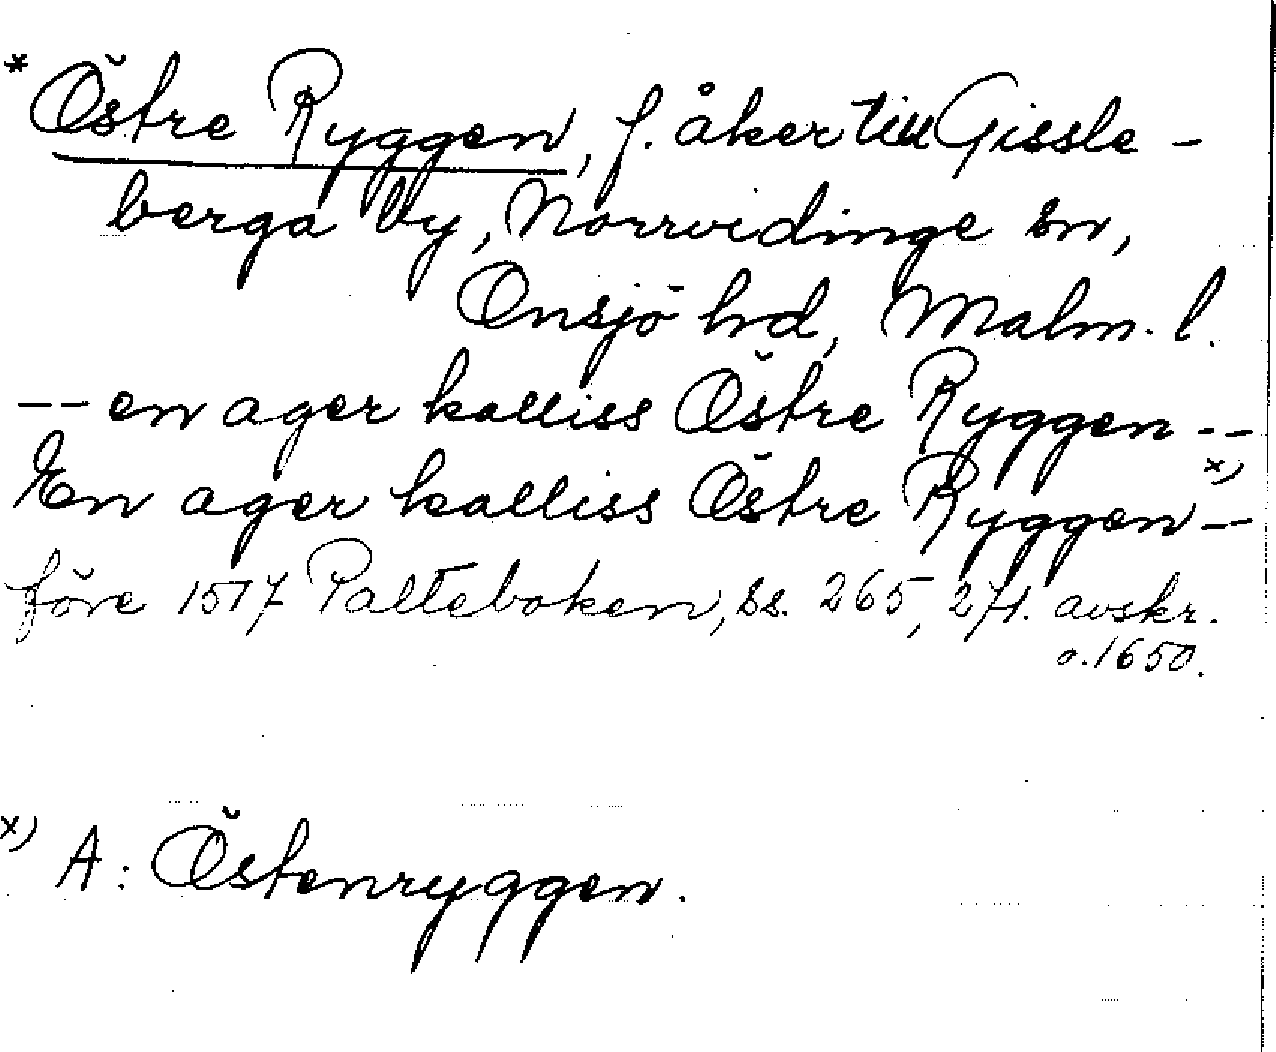 * Östre Ryggen, f. åker till Gissle-
berga by, Norrvidinge sn,
Onsjö hd, Malm. l.
-- en ager kalliss Östre Ryggen --
En ager kalliss Östre Ryggen x) –
före 1517 Palteboken, ss. 265, 271. avskr.
o. 1650.
x) A: Östenryggen.